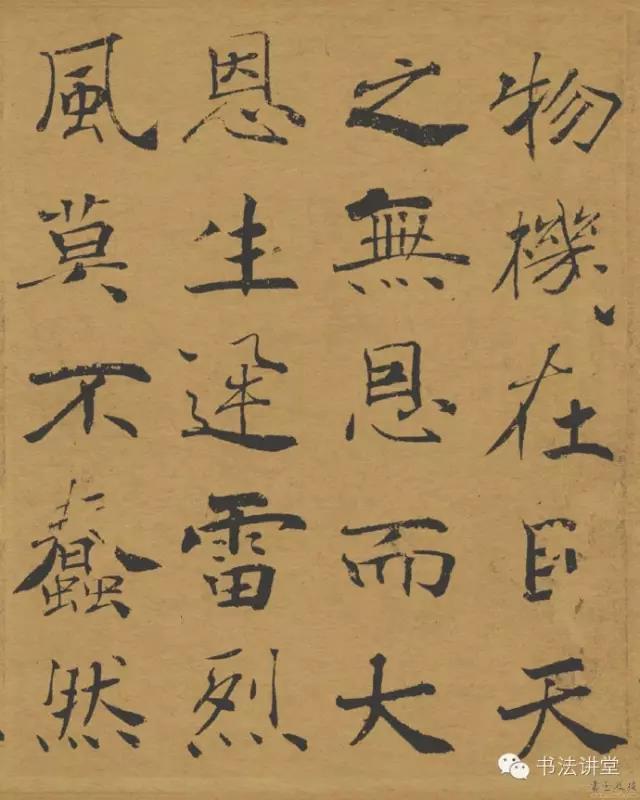 物機在目天
之無恩而大
恩生迅雷烈
風莫不蠢然
书法讲堂